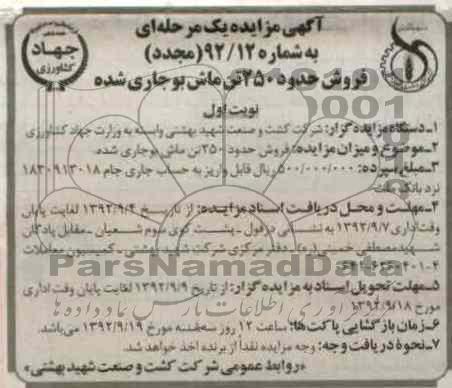 آگهی مزایده یک مرحله‌ای
به شماره ۹۲/۱۲ (مجدد)
فروش حدود ۲۵۰ تن ماش بوجاری شده
جهاد
کشاورزی
نوبت اول
۱ـ دستگاه مزایده گزار: شرکت کشت و صنعت شهید بهشتی وابسته به وزارت جهاد کشاورزی
۲ـ موضوع و میزان مزایده: فروش حدود ۲۵۰ تن ماش بوجاری شده.
۳ـ مبلغ سپرده: ۵۰۰/۰۰۰/۰۰۰ ریال قابل واریز به حساب جاری جام ۱۸۳۰۹۱۳۰۱۸
نزد بانک ملت
۴ـ مهلت و محل دریافت اسناد مزایده: از تاریخ ۱۳۹۲/۹/۴ لغایت پایان
وقت اداری ۱۳۹۲/۹/۷ به نشانی دزفول ـ پشت کوی سوم شعبیان ـ مقابل پادگان
شهید مصطفی خمینی (ره)ـ دفتر مرکزی شرکت شهید بهشتی ـ کمیسیون معاملات
ParsNamadData
۵ـ مهلت تحویل اسناد به مزایده گزار: از تاریخ ۱۳۹۲/۹/۹ لغایت پایان وقت اداری
مورخ ۱۳۹۲/۹/۱۸
۶ـ زمان بازگشایی پاکت‌ها: ساعت ۱۲ روز سه‌شنبه مورخ ۱۳۹۲/۹/۱۹ می‌باشد.
۷ـ نحوه دریافت وجه: وجه مزایده نقداً از برنده اخذ خواهد شد.
«روابط عمومی شرکت کشت و صنعت شهید بهشتی»